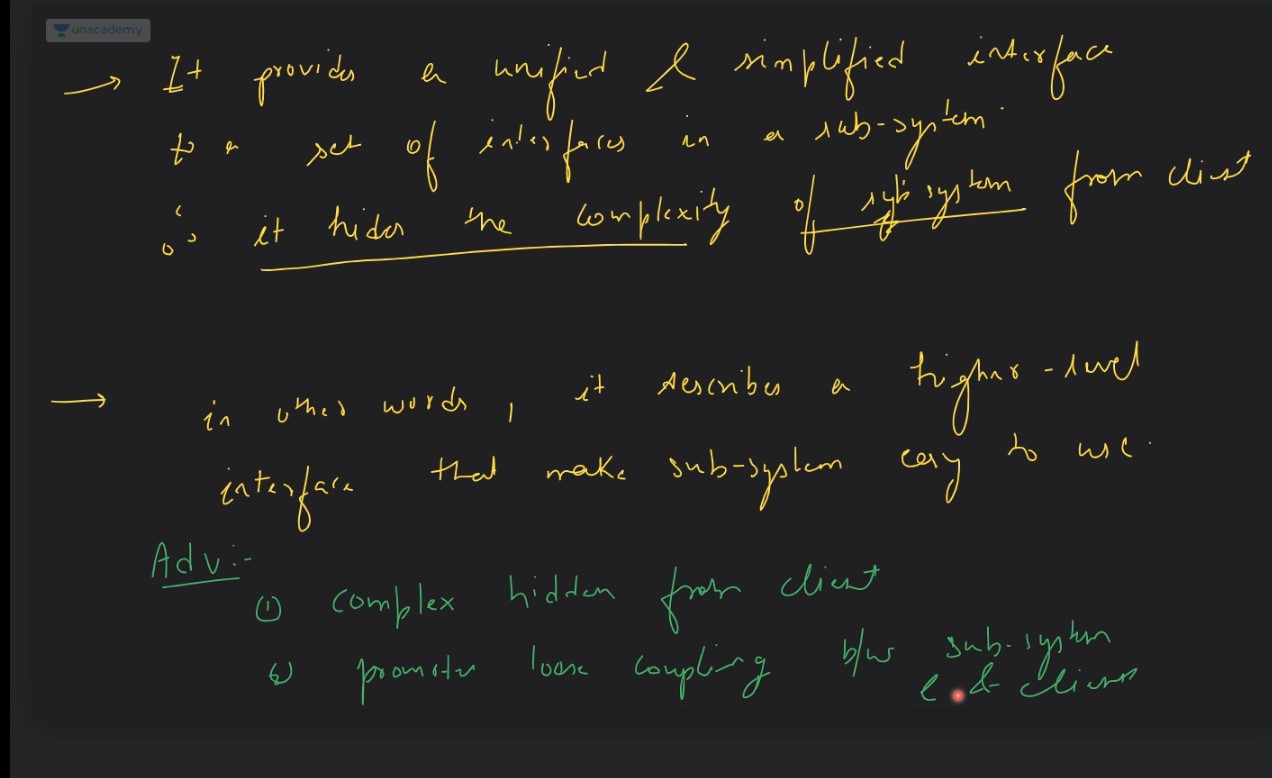 unacademy
→ It provides a unified & simplified interface
to a set of interfaces in a sub-system.
∴ it hides the complexity of sub system from client
→ in other words, it describes a higher-level
interface that make sub-system easy to use.
Adv:-
① complex hidden from client
② promotes loose coupling b/w sub-system
& clients